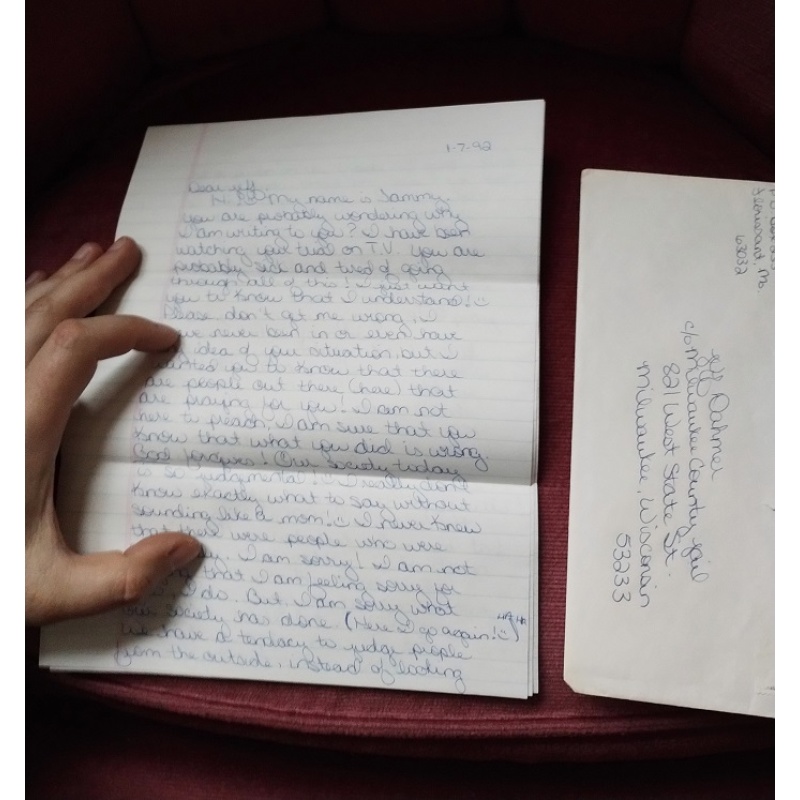 1-7-92
Dear Jeff,
Hi! My name is Tammy.
you are probably wondering why
I am writing to you? I have been
watching your trial on T.V. you are
probably sick and tired of going
through all of this! I just want
you to know that I understand!
Please don't get me wrong, I
never been in or even have
idea of your situation, but I
wanted you to know that there
are people out there (here) that
are praying for you! I am not
here to preach, I am sure that you
know that what you did is wrong.
God forgives! Our society today
is so judgmental! I really don't
know exactly what to say without
sounding like a mom! I never knew
that there were people who were
I am sorry! I am not
that I am feeling sorry for
I do. But I am sorry what
our society has done. (Here I go again!) HA HA
We have a tendacy to judge people
from the outside, instead of looking
Florissant, Mo.
63032
Jeff Dahmer
c/o Milwaukee County Jail
821 West State St.
Milwaukee, Wisconsin
53233